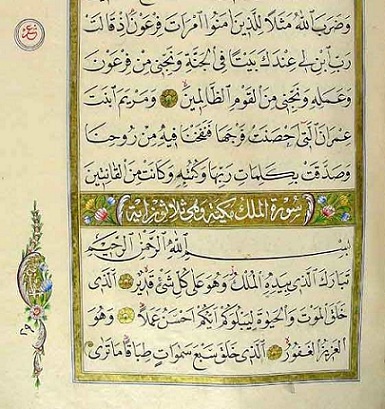 وَضَرَبَ اللّٰهُ مَثَلًا لِلَّذِينَ اٰمَنُوا امْرَاَتَ فِرْعَوْنَ اِذْ قَالَتْ
رَبِّ ابْنِ لِي عِنْدَكَ بَيْتًا فِي الْجَنَّةِ وَنَجِّنِي مِنْ فِرْعَوْنَ
وَعَمَلِهِ وَنَجِّنِي مِنَ الْقَوْمِ الظَّالِمِينَ وَمَرْيَمَ ابْنَتَ
عِمْرَانَ الَّتِي اَحْصَنَتْ فَرْجَهَا فَنَفَخْنَا فِيهِ مِنْ رُوحِنَا
وَصَدَّقَتْ بِكَلِمَاتِ رَبِّهَا وَكُتُبِهِ وَكَانَتْ مِنَ الْقَانِتِينَ
سُورَةُ الْمُلْكِ مَكِّيَّةٌ وَهِيَ ثَلَاثُونَ اٰيَةً
بِسْمِ اللّٰهِ الرَّحْمٰنِ الرَّحِيمِ
تَبَارَكَ الَّذِي بِيَدِهِ الْمُلْكُ وَهُوَ عَلٰى كُلِّ شَيْءٍ قَدِيرٌ اَلَّذِي
خَلَقَ الْمَوْتَ وَالْحَيٰوةَ لِيَبْلُوَكُمْ اَيُّكُمْ اَحْسَنُ عَمَلًا وَهُوَ
الْعَزِيزُ الْغَفُورُ اَلَّذِي خَلَقَ سَبْعَ سَمٰوَاتٍ طِبَاقًا مَا تَرٰى